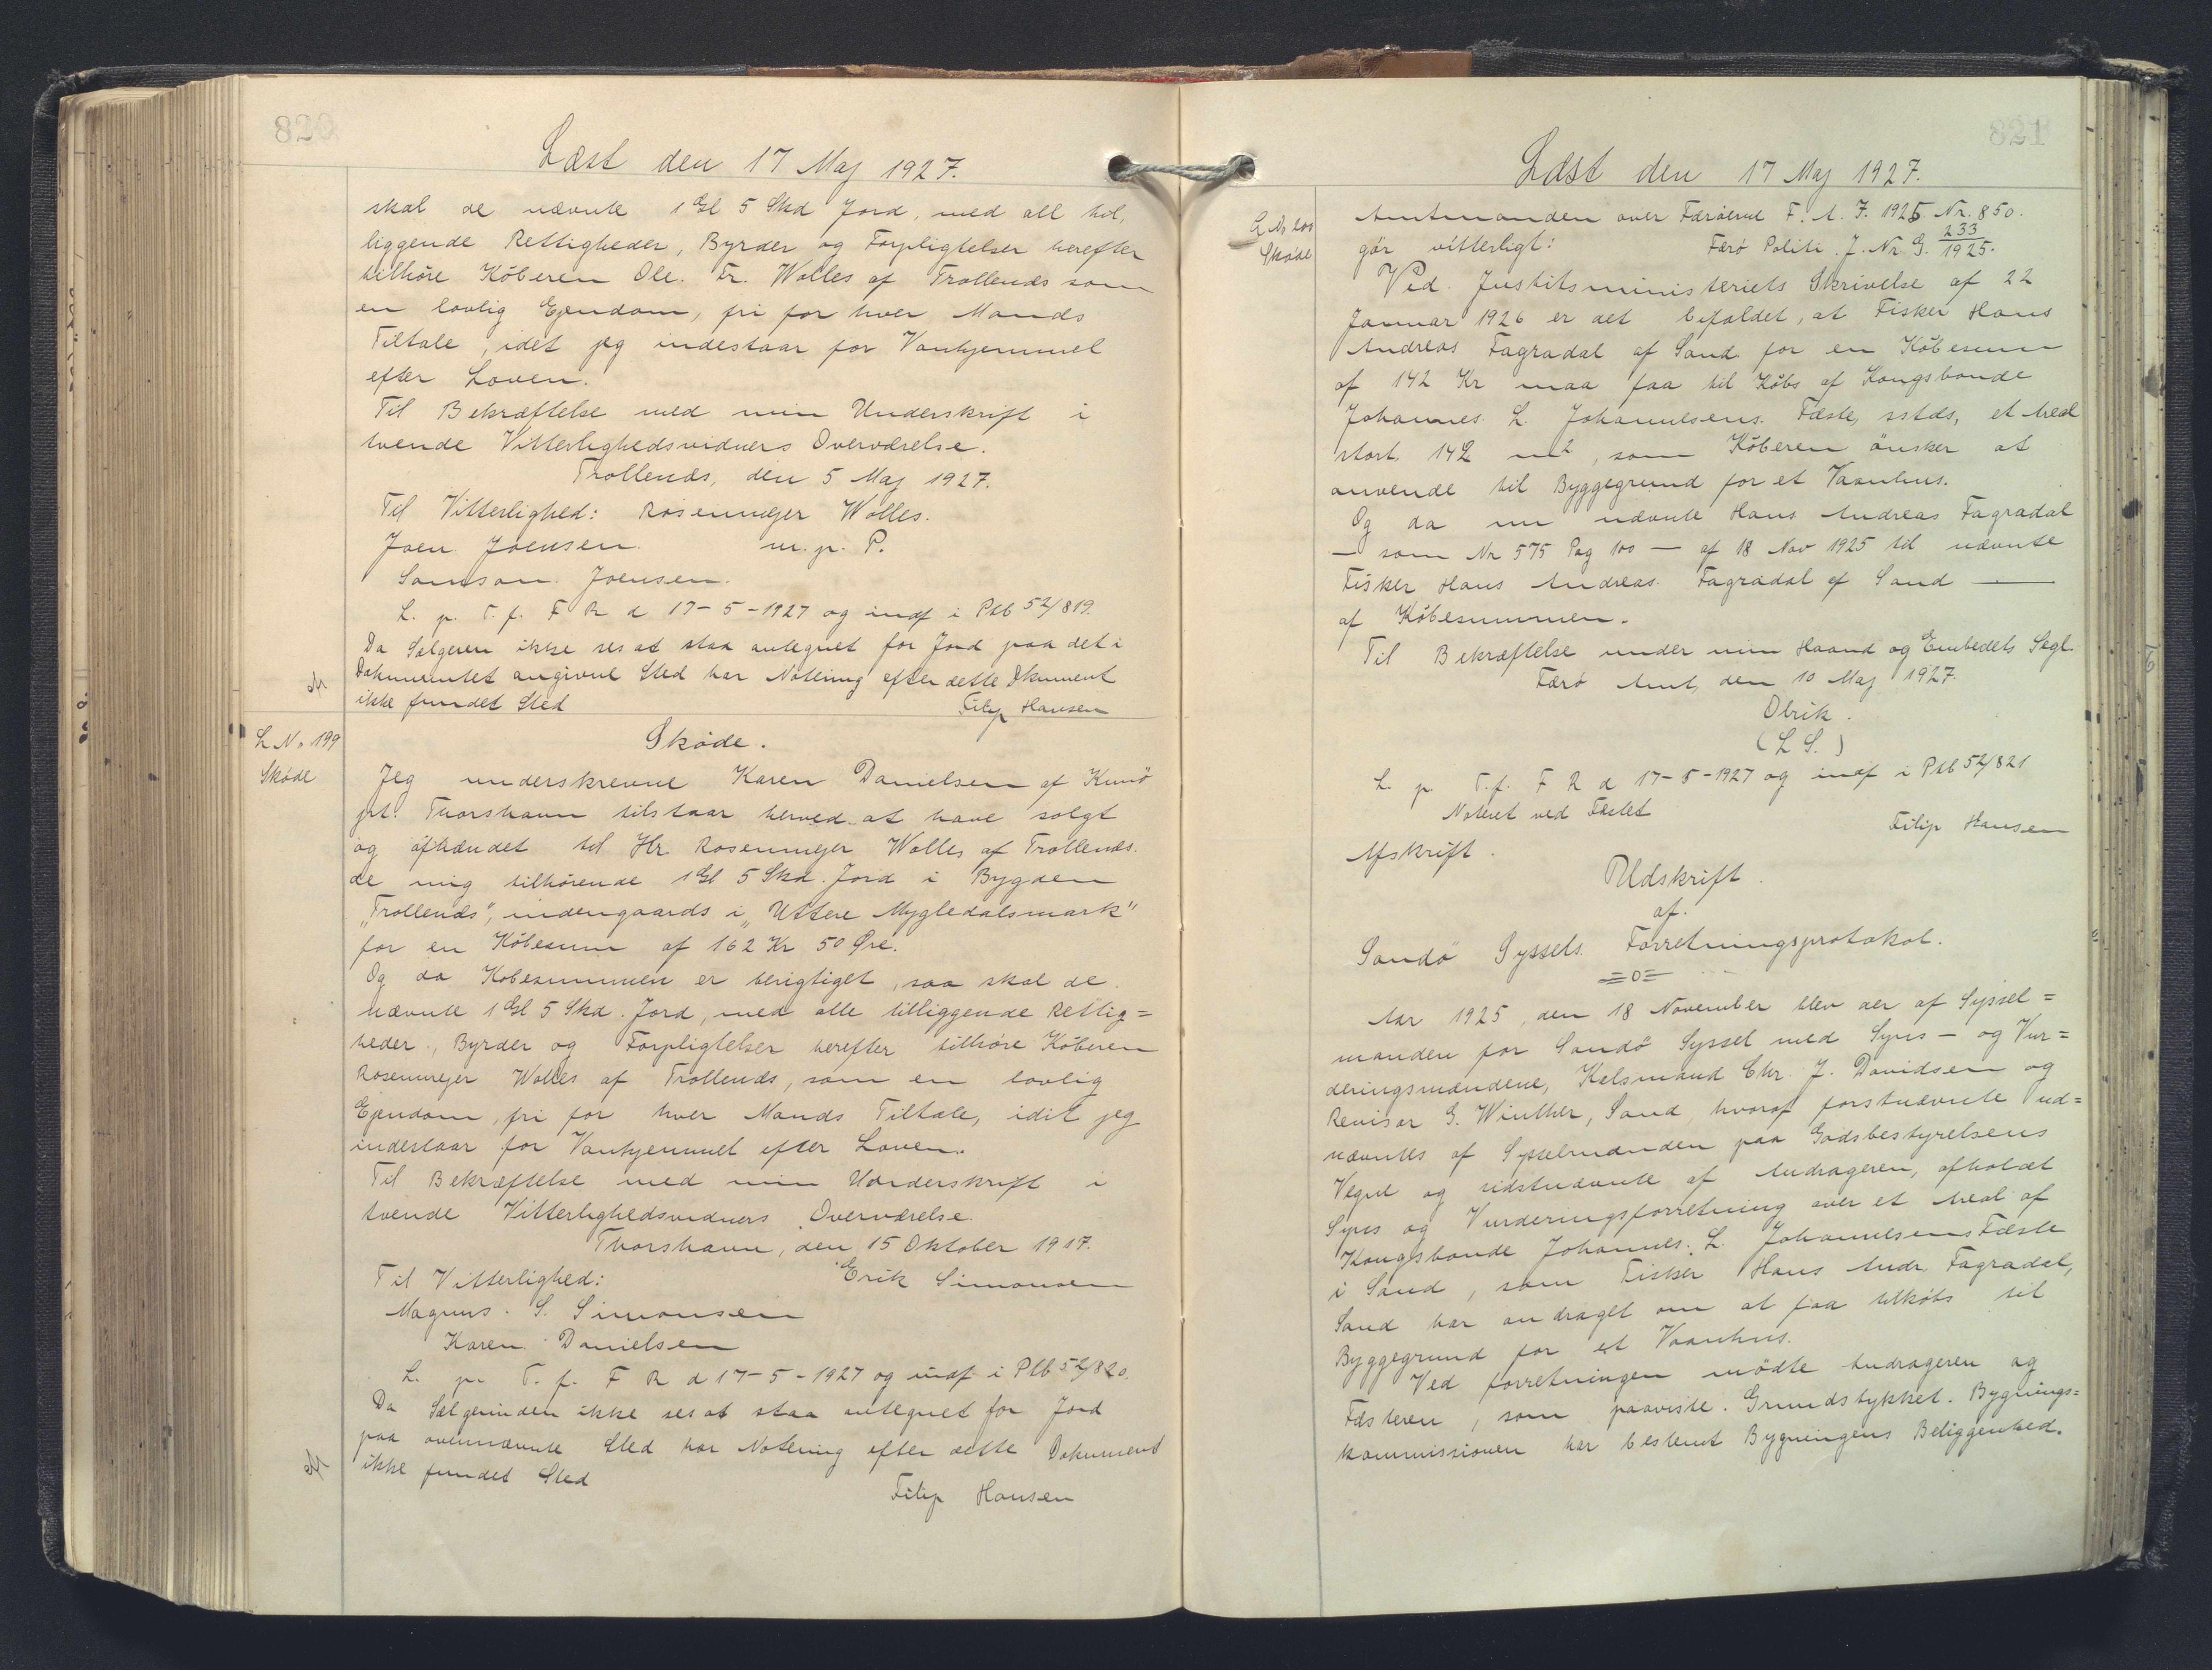 820
Læst den 17 Maj 1927.
skal de nævnte 1 Gl 5 Skd Jord, med all til,
liggende Rettigheder, Byrder og Forpligtelser herefter
tilhøre Køberen Ole. Fr. Wolles af Trollends som
en lovlig Ejendom, fri for hver Mands
Tiltale, idet jeg indestaar for Vanhjemmel
efter Loven.
Til Bekræftelse med min Underskrift i
tvende Vitterlighedsvidners Overværelse.
Trollends, den 5 Maj 1927.
Til Vitterlighed: Rosenmejer Wolles.
Joen Joensen. m.p. P.
Samson. Joensen.
L. p. T. f. F R d 17-5-1927 og indf i Ptb 52/819.
Da Sælgeren ikke ses at staa antegnet for Jord paa det i
Dokumentet angivne Sted har Notering efter dette Dkument
ikke fundet Sted
Filip Hansen
L No 199
Skøde
Skøde.
Jeg underskrevne Karen Danielsen af Kunö
pt. Thorshavn tilstaar herved at have solgt
og afhændet til Hr Rosenmejer Wolles af Trollends.
de mig tilhørende 1 Gl 5 Skd. Jord i Bygden
"Trollends", indengaards i "Uttere Mygledalsmark"
for en Købesum af 162 Kr 50 Øre.
Og da Købesummen er berigtiget, saa skal de
nævnte 1 Gl 5 Skd. Jord, med alle tilliggende Rettig=
heder, Byrder og Forpligtelser herefter tilhøre Køberen
Rosenmejer Wolles af Trollends, som en lovlig
Ejendom, fri for hver Mands Tiltale, idet jeg
indestaar for Vanhjemmel efter Loven.
Til Bekræftelse med min Underskrift i
tvende Vitterlighedsvidners Overværelse.
Thorshavn, den 15 Oktober 1917.
Til Vitterlighed: Erik Simonsen
Magnus. S. Simonsen
Karen Danielsen
L. p. T. f. F R d 17-5-1927 og indf i Ptb 52/820.
Da Sælgerinden ikke ses at staa antegnet for Jord
paa ovennævnte Sted har Notering efter dette Dokument
ikke fundet Sted
Filip Hansen
821
Læst den 17 Maj 1927.
L No 200
Skøde
Amtmanden over Færöerne F. A. J. 1925 Nr. 850.
gör vitterligt: Færö Politi J. Nr. G. 233/1925.
Ved Justitsministeriets Skrivelse af 22
Januar 1926 er det bifaldet, at Fisker Hans
Andreas Fagradal af Sand for en Købesum
af 142 Kr maa faa til Købs af Kongsbonde
Johannes L. Johannesens. Fæste, sstds, et Areal
stort 142 m2, som Køberen önsker at
anvende til Byggegrund for et Vaanhus.
Og da nu nævnte Hans Andreas Fagradal
— som Nr 575 Pag 100 — af 18 Nov 1925 til nævnte
Fisker Hans Andreas. Fagradal af Sand —
af Købesummen.
Til Bekræftelse under min Haand og Embedets Segl.
Færö Amt, den 10 Maj 1927.
Olrik.
(L S.)
L. p. T. f. F R d 17-5-1927 og indf i Ptb 52/821
Noteret ved Fæstet
Filip Hansen
Afskrift.
Udskrift.
af.
Sandö Syssels Forretningsprotokol.
=o=
Aar 1925, den 18 November blev der af Syssel=
manden for Sandö Syssel med Syns- og Vur=
deringsmændene, Kelsmand Chr. J. Davidsen og
Revisor G. Winther, Sand, hvoraf förstnævnte ud=
nævntes af Sysselmanden paa Godsbestyrelsens
Vegne og sidstnævnte af Andrageren, afholdt
Syns og Vurderingsforretning over et Areal af
Kongsbonde Johannes. L. Johannesens Fæste
i Sand, som Fisker Hans Andr. Fagradal,
Sand har andraget om at faa tilkøbs til
Byggegrund for et Vaanhus.
Ved forretningen mödte Andrageren og
Fæsteren, som paaviste. Grundstykket. Bygnings=
kommissionen har bestemt Bygningens Beliggenhed.